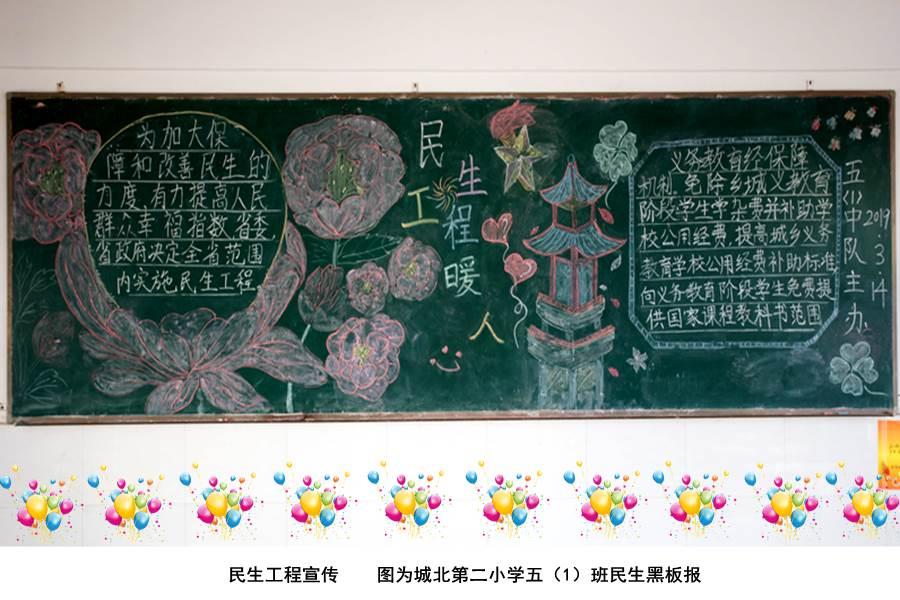 为加大保
障和改善民生的
力度,有力提高人民
群众幸福指数,省委、
省政府决定全省范围
内实施民生工程。
民生
工程
暖
人
义务教育经保障
机制,免除乡城义教育
阶段学生学杂费并补助学
校公用经费,提高城乡义务
教育学校公用经费补助标准
向义务教育阶段学生免费提
供国家课程教科书范围
五(1)中队主办
2019.3.14
民生工程宣传 图为城北第二小学五（1）班民生黑板报